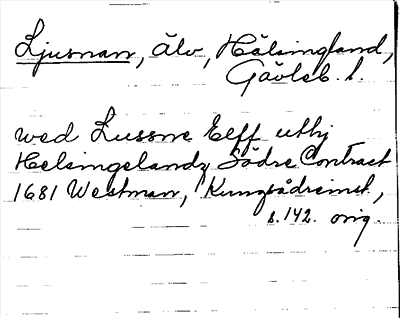 Ljusnan, älv, Hälsingland,
Gävleb. l.
wed Lussne Elff uthj
Helsingelandz Södre Contract
1681 Westman, Kungsådreinst.,
s. 142. orig.